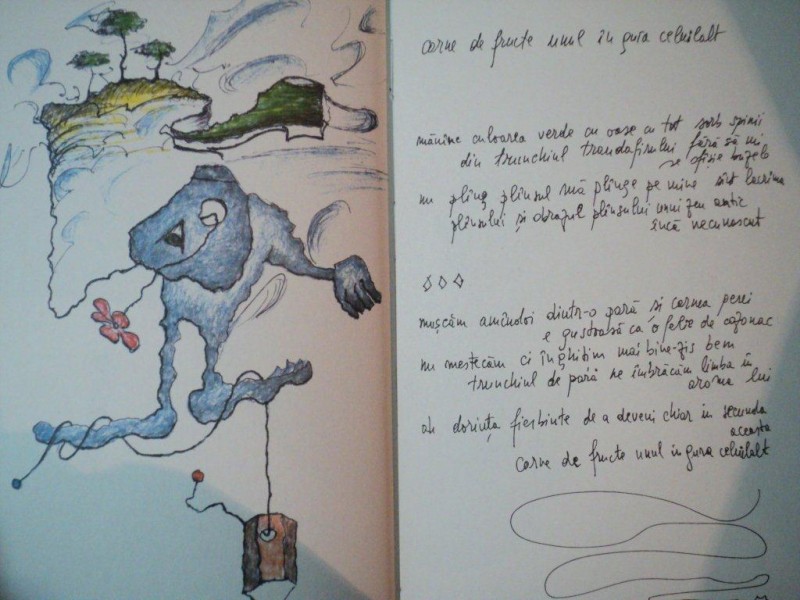 carne de fructe unul în gura celuilalt
mănînc culoarea verde cu oase cu tot sorb spinii
din trunchiul trandafirului fără să mi
se sfîșie buzele
nu plîng plînsul mă plînge pe mine sînt lacrima
plînsului și obrazul plînsului unui zeu antic
încă necunoscut
mușcăm amîndoi dintr-o pară și carnea perei
e gustoasă ca o felie de cozonac
nu mestecăm ci înghițim mai bine-zis bem
trunchiul de pară ne îmbrăcăm limba în
aroma lui
ah dorința fierbinte de a deveni chiar în secunda
aceasta
carne de fructe unul în gura celuilalt